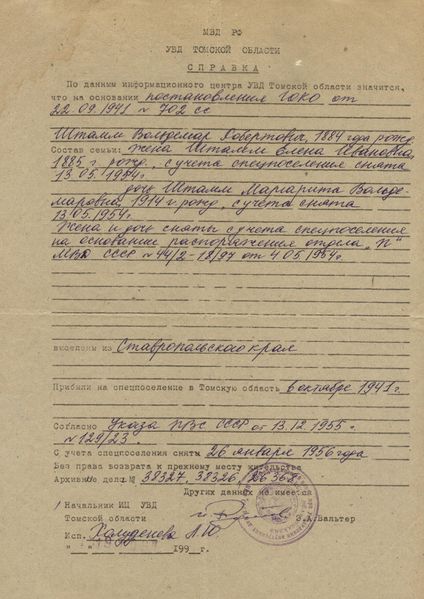 МВД РФ
УВД ТОМСКОЙ ОБЛАСТИ
СПРАВКА
По данным информационного центра УВД Томской области значится,
что на основании постановления ГОКО от
22.09.1941 № 702 сс
Штамм Вольдемар Робертович, 1884 года рожд.
Состав семьи: жена Штамм Елена Ивановна,
1885 г. рожд., с учета спецпоселения снята
13.05.1954г.
дочь Штамм Маргарита Вольде-
маровна, 1914 г. рожд., с учета снята
13.05.1954г.
Жена и дочь сняты с учета спецпоселения
на основании распоряжения отдела "П"
МВД СССР № 44/2-12/97 от 4.05.1954г.
выселены из Ставропольского края
Прибыли на спецпоселение в Томскую область 6 октября 1941г.
Согласно Указа ПВС СССР от 13.12.1955г.
№ 129/23.
С учета спецпоселения сняты 26 января 1956 года
Без права возврата к прежнему месту жительства
Архивное дело № 38327, 38326, 26368
Других данных не имеется
Начальник ИЦ УВД
Томской области Э.А.Вальтер
Исп.
" " 199 г.